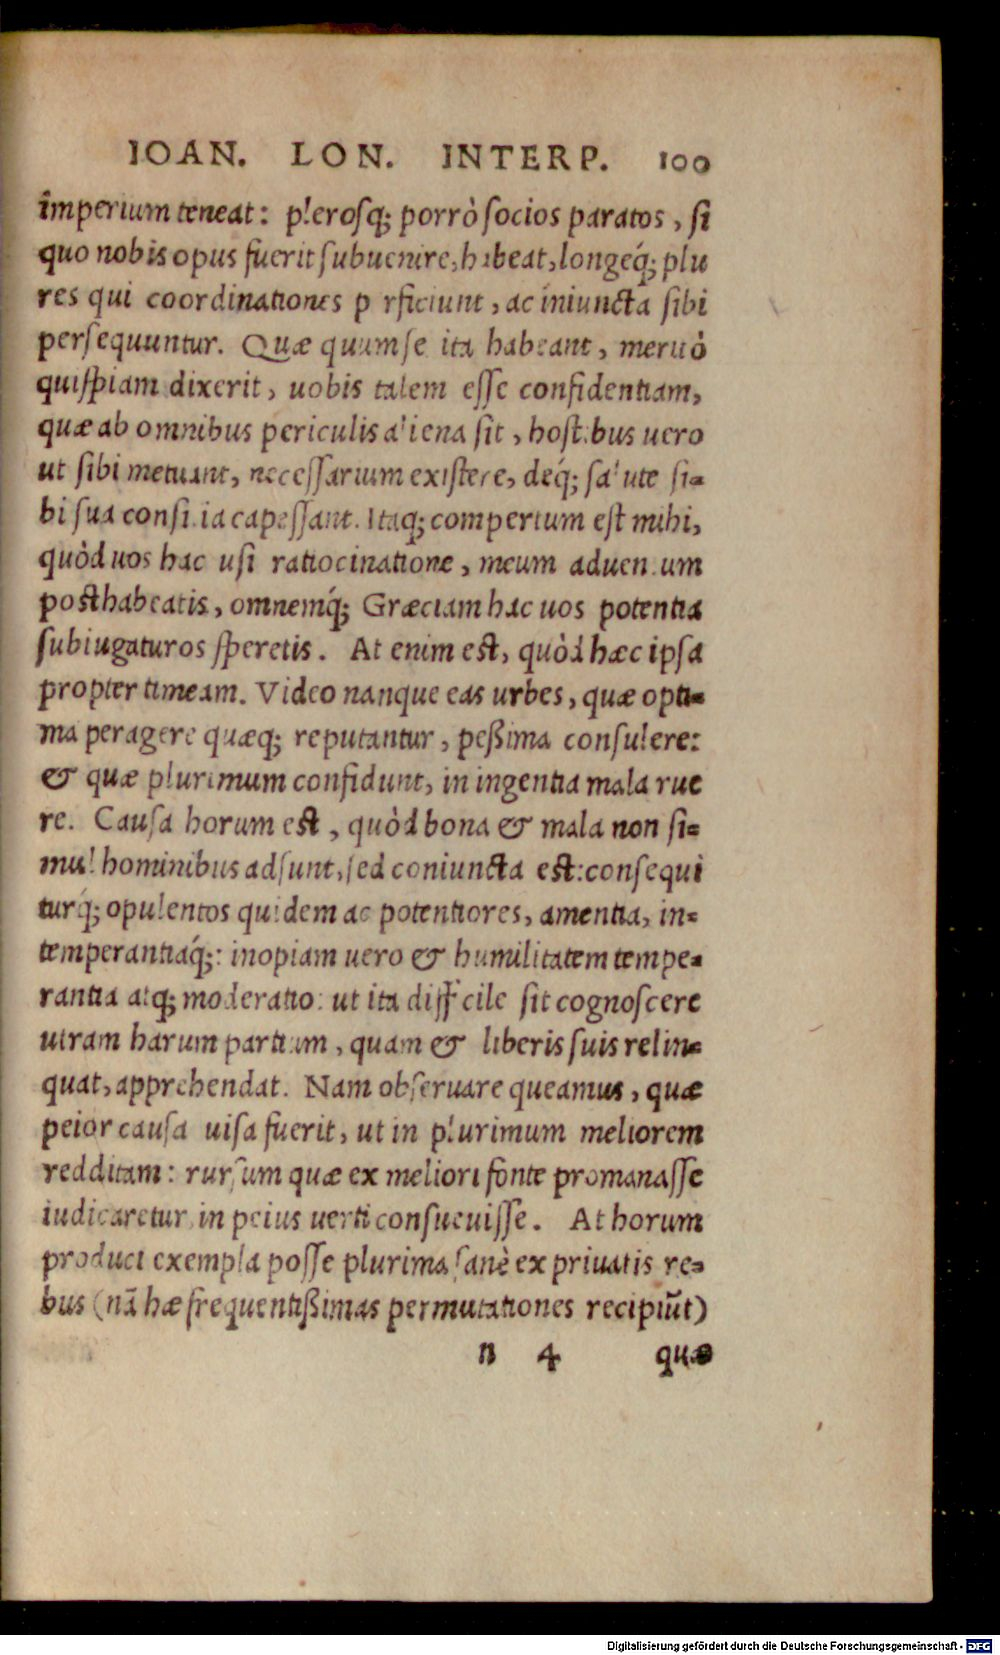 IOAN. LON. INTERP. 100
imperium teneat: plerosq; porrò socios paratos, si
quo nobis opus fuerit subuenire, habeat, longeq́; plu
res qui coordinationes p rficiunt, ac iniuncta sibi
persequuntur. Quæ quum se ita habeant, meritò
quispiam dixerit, uobis talem esse confidentiam,
quæ ab omnibus periculis aliena sit, hostibus uero
ut sibi metuant, necessarium existere, deq́; salute si-
bi sua consilia capessant. Itaq; compertum est mihi,
quòd uos hac usi ratiocinatione, meum aduentum
posthabeatis, omnemq́; Græciam hac uos potentia
subiugaturos speretis. At enim est, quòd hæc ipsa
propter timeam. Video nanque eas urbes, quæ opti-
ma peragere quæq; reputantur, peßima consulere:
& quæ plurimum confidunt, in ingentia mala rue
re. Causa horum est, quòd bona & mala non si-
mul hominibus adsunt, sed coniuncta est: consequi
turq́; opulentos quidem ac potentiores, amentia, in-
temperantiaq́;: inopiam uero & humilitatem tempe-
rantia atq; moderatio: ut ita difficile sit cognoscere
utram harum partium, quam & liberis suis relin-
quat, apprehendat. Nam obseruare queamus, quæ
peior causa uisa fuerit, ut in plurimum meliorem
redditam: rursum quæ ex meliori fonte promanasse
iudicaretur, in peius uerti consueuisse. At horum
produci exempla posse plurima, sanè ex priuatis re-
bus (nā hæ frequentißimas permutationes recipiūt)
n 4 quæ
Digitalisierung gefördert durch die Deutsche Forschungsgemeinschaft - DFG